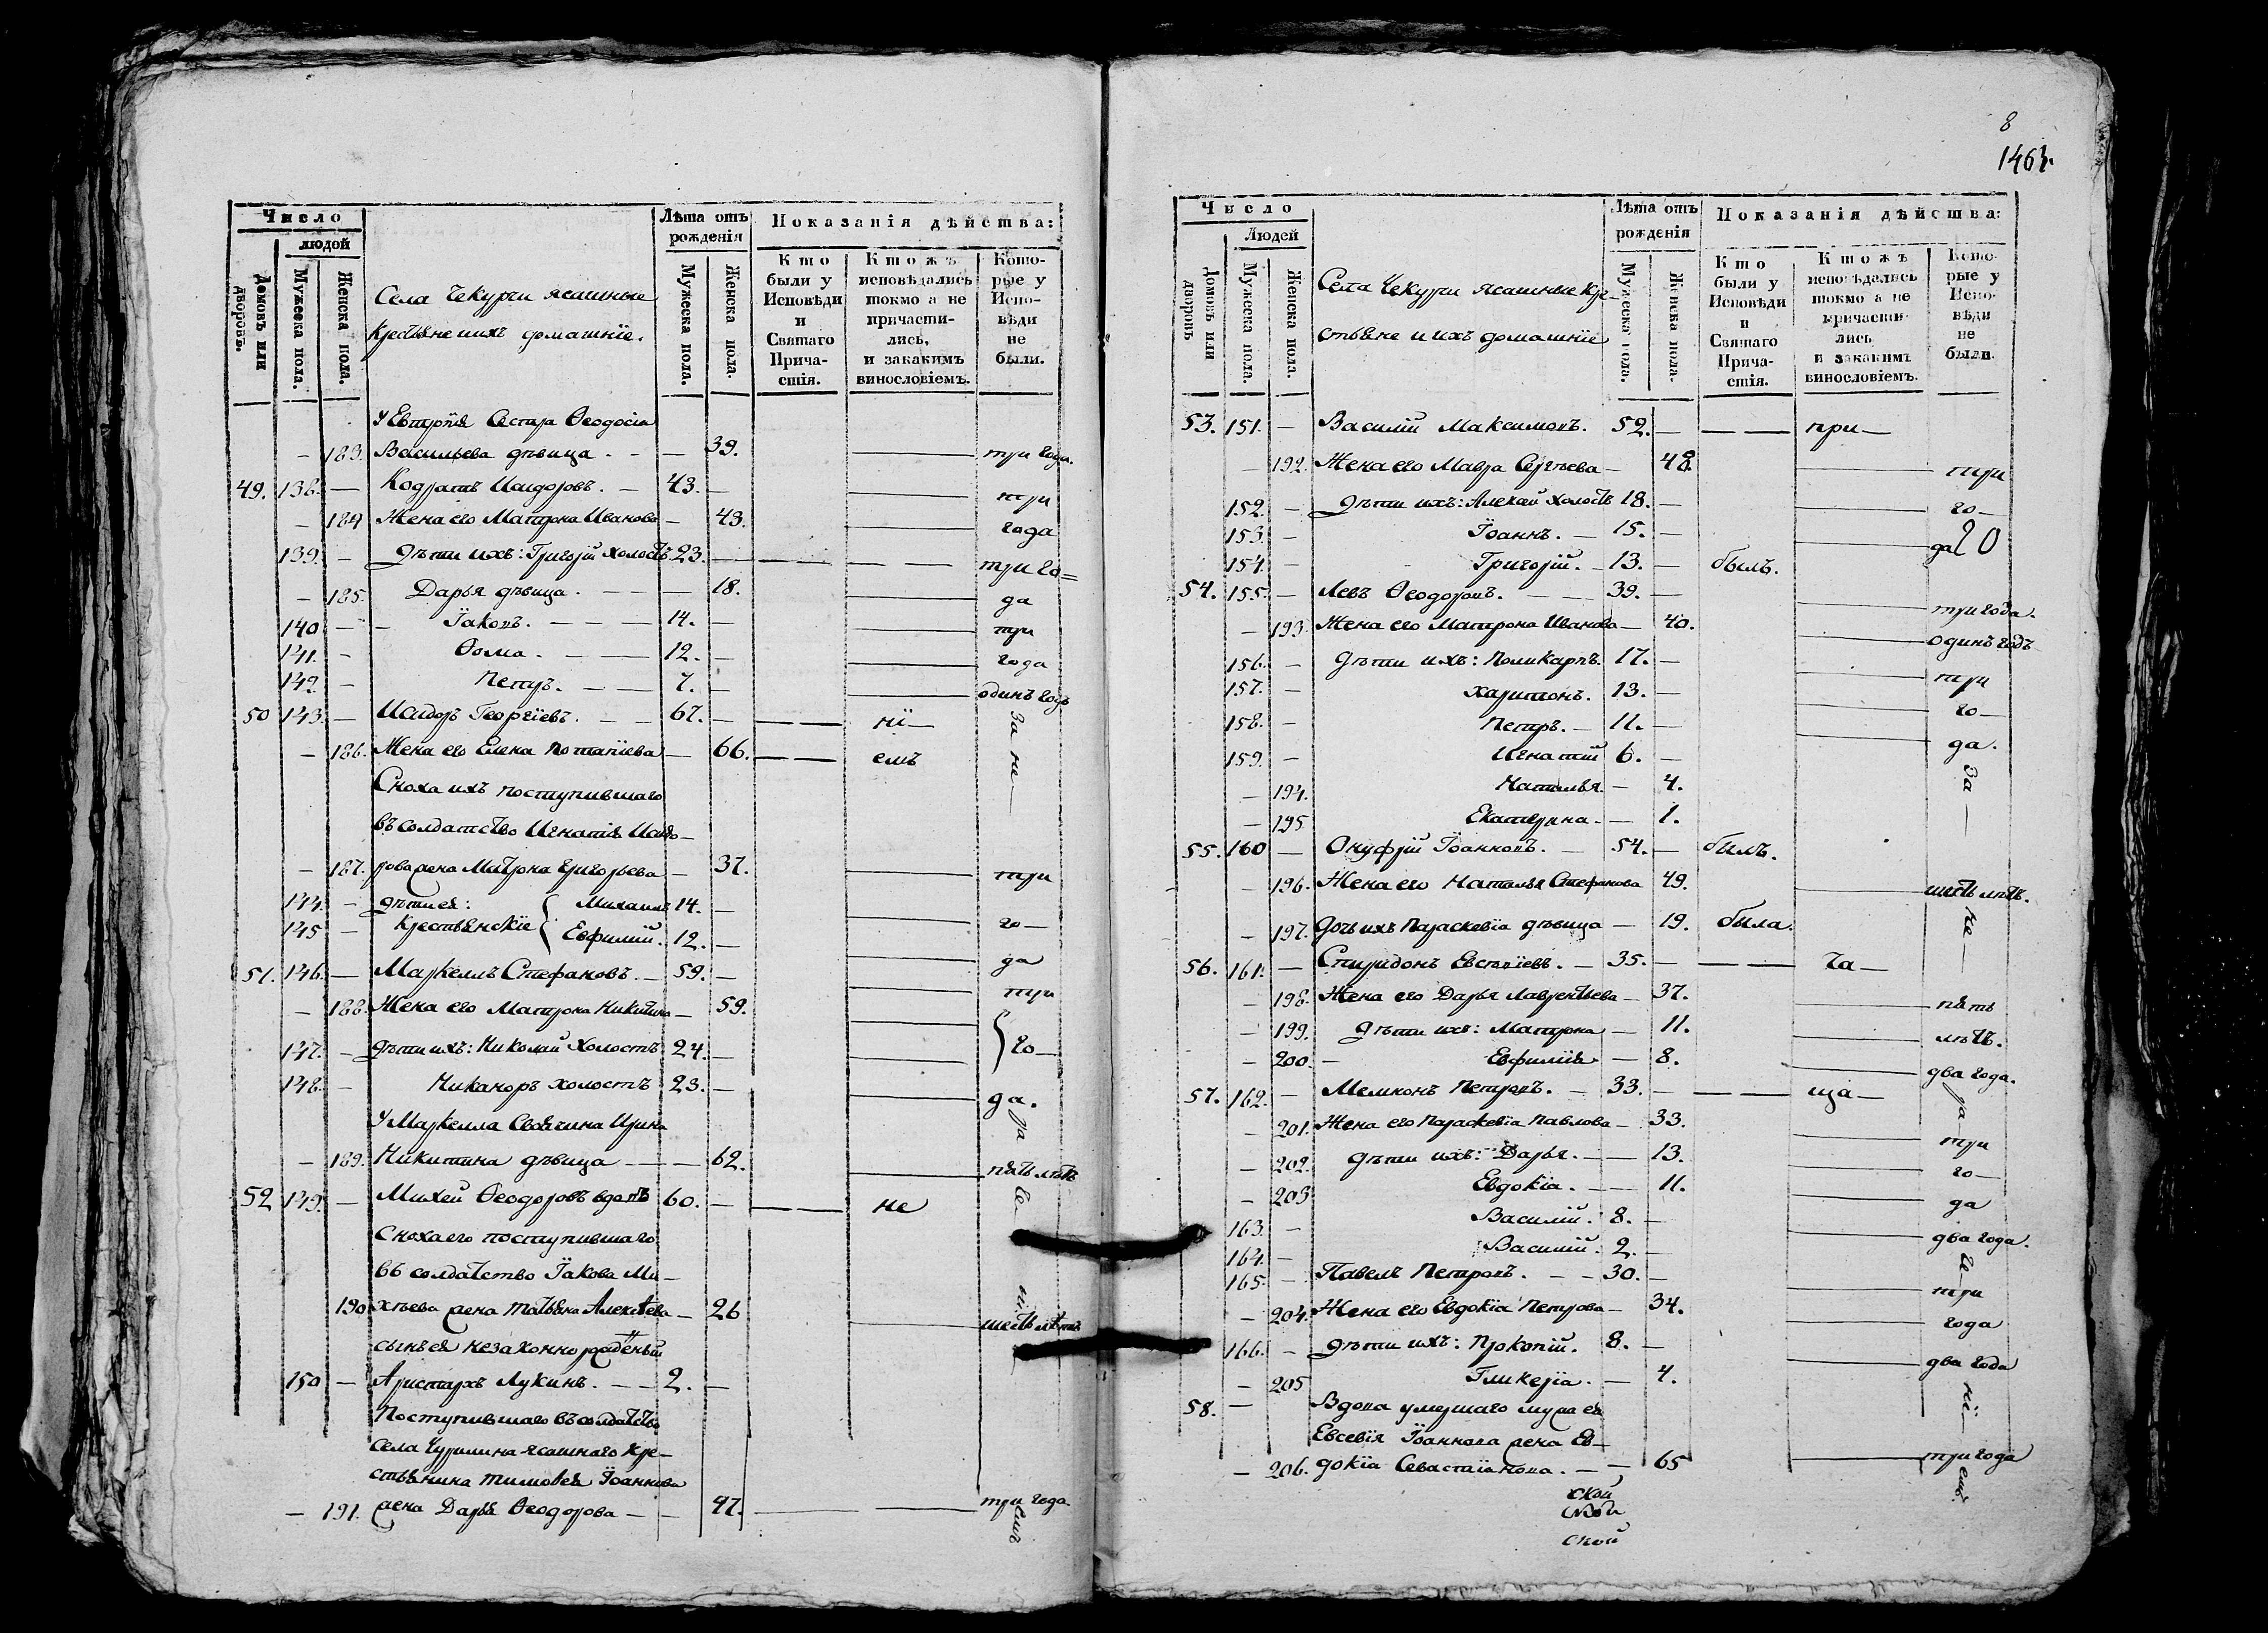 Число
людой
Домовъ или дворовъ.
Мужеска пола.
Женска пола.
Села Чекурчи ясашные
крестьяне ихъ домашнїе.
Лѣта отъ рожденія
Мужеска пола.
Женска пола.
Показанія дѣйства:
Кто были у Исповѣди и Святаго Причастія.
Ктожъ исповѣдались токмо а не причастились, и закакимъ винословіемъ.
Которые у Исповѣди не были.
У Евтропїя Сестра Ѳеодосіа
— 183. Васильева дѣвица — 39. три года.
49. 138. — Кодратъ Исидоровъ. — 43. — три
— 184 Жена его Матрона Иванова — 43. года
139. — дѣти ихъ: Григорїй холостъ 23. — три го=
— 185. Дарья дѣвица. — 18. да
140 — Їаковъ. — 14. — три
141. — Ѳома. — 12. — года
142. — Петръ. — 7. — одинъ годъ
50 143. — Исидоръ Георгїевъ. — 67. — нї—
— 186. Жена его Елена Потапїева — 66. емъ
За не—
Сноха ихъ поступившаго
въ солдатство Игнатїя Исидо—
— 187. рова жена Матрона Григорьева — 37. три
144. — дѣти ея: Михаилъ 14. —
145 — Крестьянскїе Евфимїй. 12. — го—
51. 146. — Маркеллъ Стефановъ. — 59. — да
— 188. Жена его Матрона Никитина — 59. три
147. — дѣти ихъ: Николай холостъ 24. — го—
148. — Никаноръ холостъ 23. —
да.
У Маркелла Своячина Ирина
— 189. Никитина дѣвица — 62. пять лѣтъ
52 149. — Михей Ѳеодоровъ вдовъ 60. — не
Сноха его поступившаго
въ солдатство Їакова Ми—
190 хѣева жена Татьяна Алексѣева — 26 шесть лѣтъ
сынъ ея незаконнорожденый
150 — Аристархъ Лукинъ. — 2. —
Поступившаго въ солдатство
села Чурилина ясашнаго кре—
стьянина Тимоѳея Їоаннова
— 191. жена Дарья Ѳеодорова — 47. три года
емъ
8
146
Число
Людей
Домовъ или дворовъ
Мужеска пола.
Женска пола.
Села Чекурчи ясашные кре—
стьяне и ихъ домашнїе
Лѣта отъ рожденія
Мужеска пола.
Женска пола.
Показанія дѣйства:
Кто были у Исповѣди и Святаго Причастія.
Ктожъ исповѣдались токмо а не причастились и закакимъ винословіемъ.
Которые у Исповѣди не были.
53. 151. — Василїй Максимовъ. 52. — при—
— 192. Жена его Мавра Сергѣева — 48. три
152. — дѣти ихъ: Алексїй холостъ 18. — го—
153. — Їоаннъ. — 15. — да
154. — Григорїй. — 13. — былъ.
54. 155. — Левъ Ѳеодоровъ. — 39. — три года.
— 193. Жена его Матрона Иванова — 40. одинъ годъ
156. — дѣти ихъ: Поликарпъ. 17. — три
157. — Харитонъ. 13. — го—
158. — Петръ. — 11. — да.
159. — Игнатїй 6. —
За—
— 194. Наталья. — 4.
— 195 Екатерина. — 1.
55. 160 — Онуфрїй Їоанновъ. — 54. — былъ.
— 196. Жена его Наталья Стефанова 49. шесть лѣтъ.
не—
— 197. Дочь ихъ Параскевїа дѣвица — 19. была.
56. 161. — Спиридонъ Евстпїевъ. — 35. — ча—
— 198. Жена его Дарья Лаврентьева — 37. пять
— 199. дѣти ихъ: Матрона — 11. лѣтъ.
— 200. — Евфимїя — 8. два года.
57. 162. — Мемнонъ Петровъ. — 33. — ща—
— 201. Жена его Параскевїа Павлова — 33. три
— 202. дѣти ихъ: Дарья. — 13. го—
— 203 Евдокїа. — 11. да
163. — Василїй. 8. — два года.
164. — Василїй. 2. —
165. — Павелъ Петровъ. — 30. — три
— 204. Жена его Евдокїа Петрова — 34. года
166. — дѣти ихъ: Прокопїй. 8. — два года
— 205 Гликерїа. — 4.
нї—
58. — Вдова умершаго мужа ея
Евсевїя Їоаннова жена Ев—
— 206. докїа Севастїанова. — 65 три года
емъ.
ской
ской